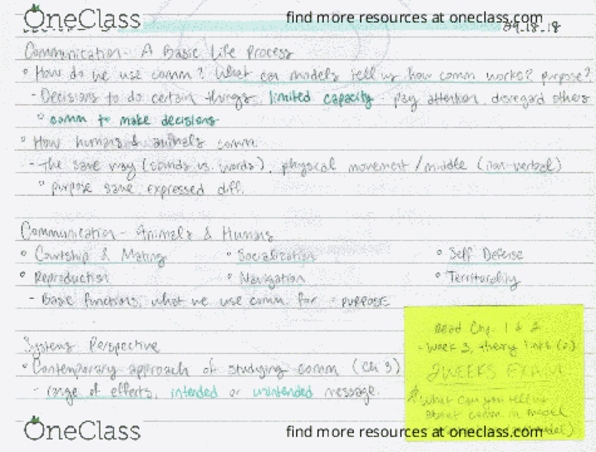 OneClass
find more resources at oneclass.com
09-18-18
Communication - A Basic Life Process
° How do we use comm? What can models tell us how comm works? purpose?
- Decisions to do certain things, limited capacity - pay attention, disregard others
° comm to make decisions
° How humans & animals comm
- the same way (sounds vs. words), physical movement / middle (non-verbal)
° purpose same, expressed diff.
Communication - Animals & Humans
° Courtship & Mating ° Socialization ° Self Defense
° Reproduction ° Navigation ° Territoriality
- Basic functions, what we use comm for - PURPOSE
Systems Perspective
° Contemporary approach of studying comm (Ch 3)
- range of effects, intended or unintended message.
Read Chp. 1 & 2
- Week 3, theory links
2 WEEKS EXAM
What can you tell us
about comm in model
OneClass
find more resources at oneclass.com